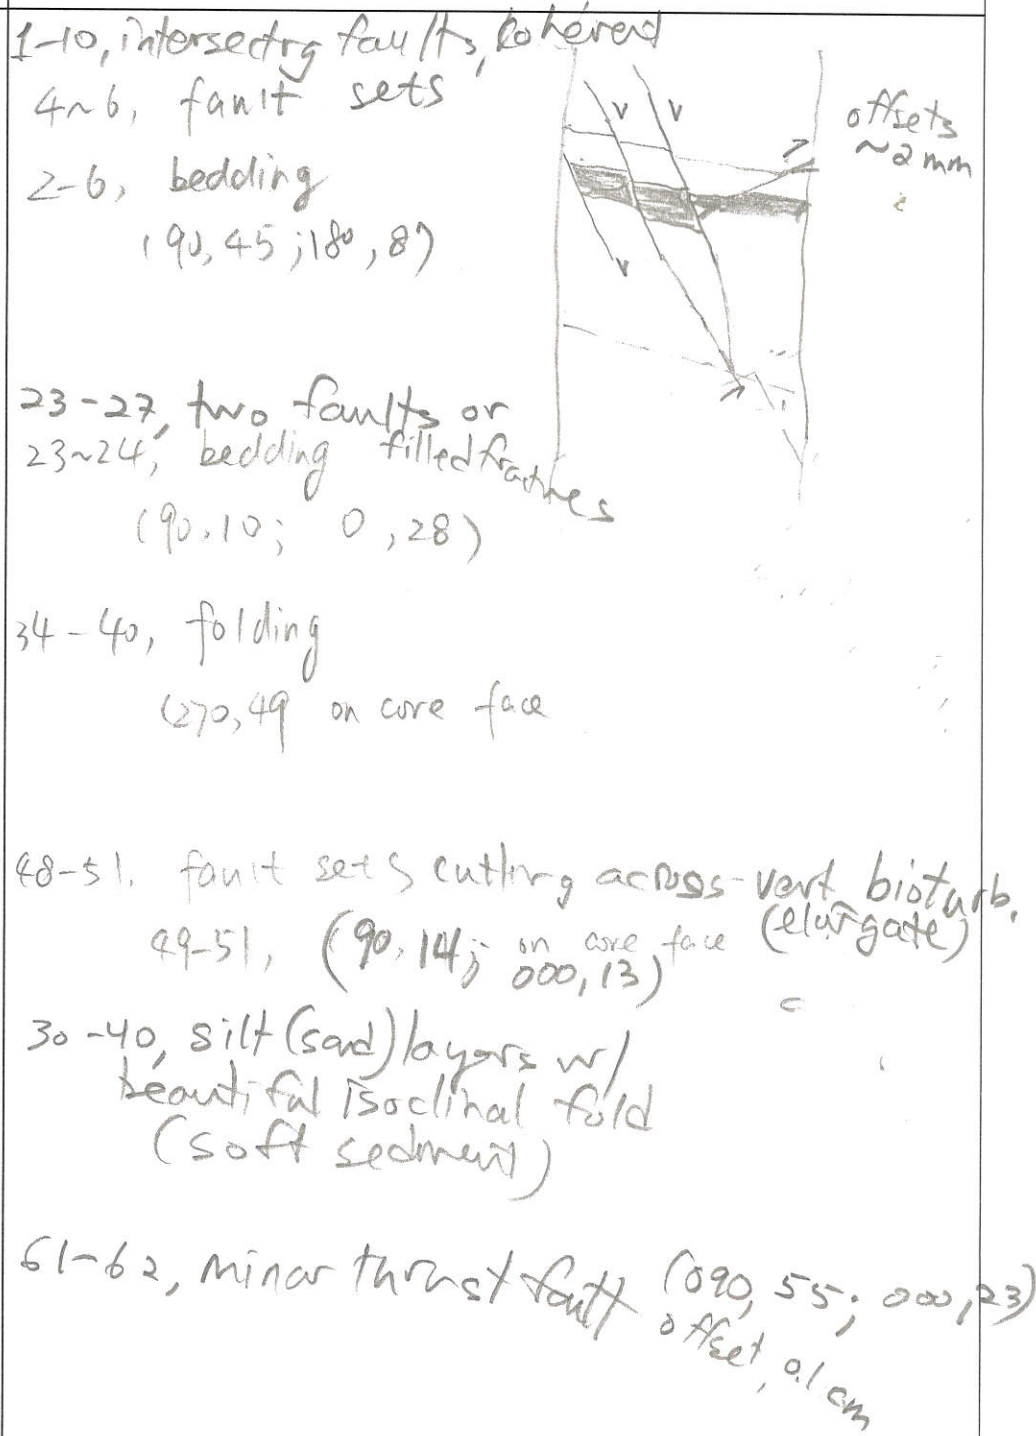 1-10, intersectrg faults,
offsets
~2 mm
4~6, fault sets
2-6, bedding
(90, 45; 180, 8)
23-27, two faults or
filled fractures
23~24, bedding
(90, 10; 0, 28)
34-40, folding
(270, 49 on core face
48-51. fault sets cutting across vert bioturb.
(elongate)
49-51, (90, 14; on core face
000, 13)
30-40, silt (sand) layers w/
beautiful isoclinal fold
(soft sediment)
61-62, minor thrust fault (090, 55; 000, 23)
offset, 0.1 cm